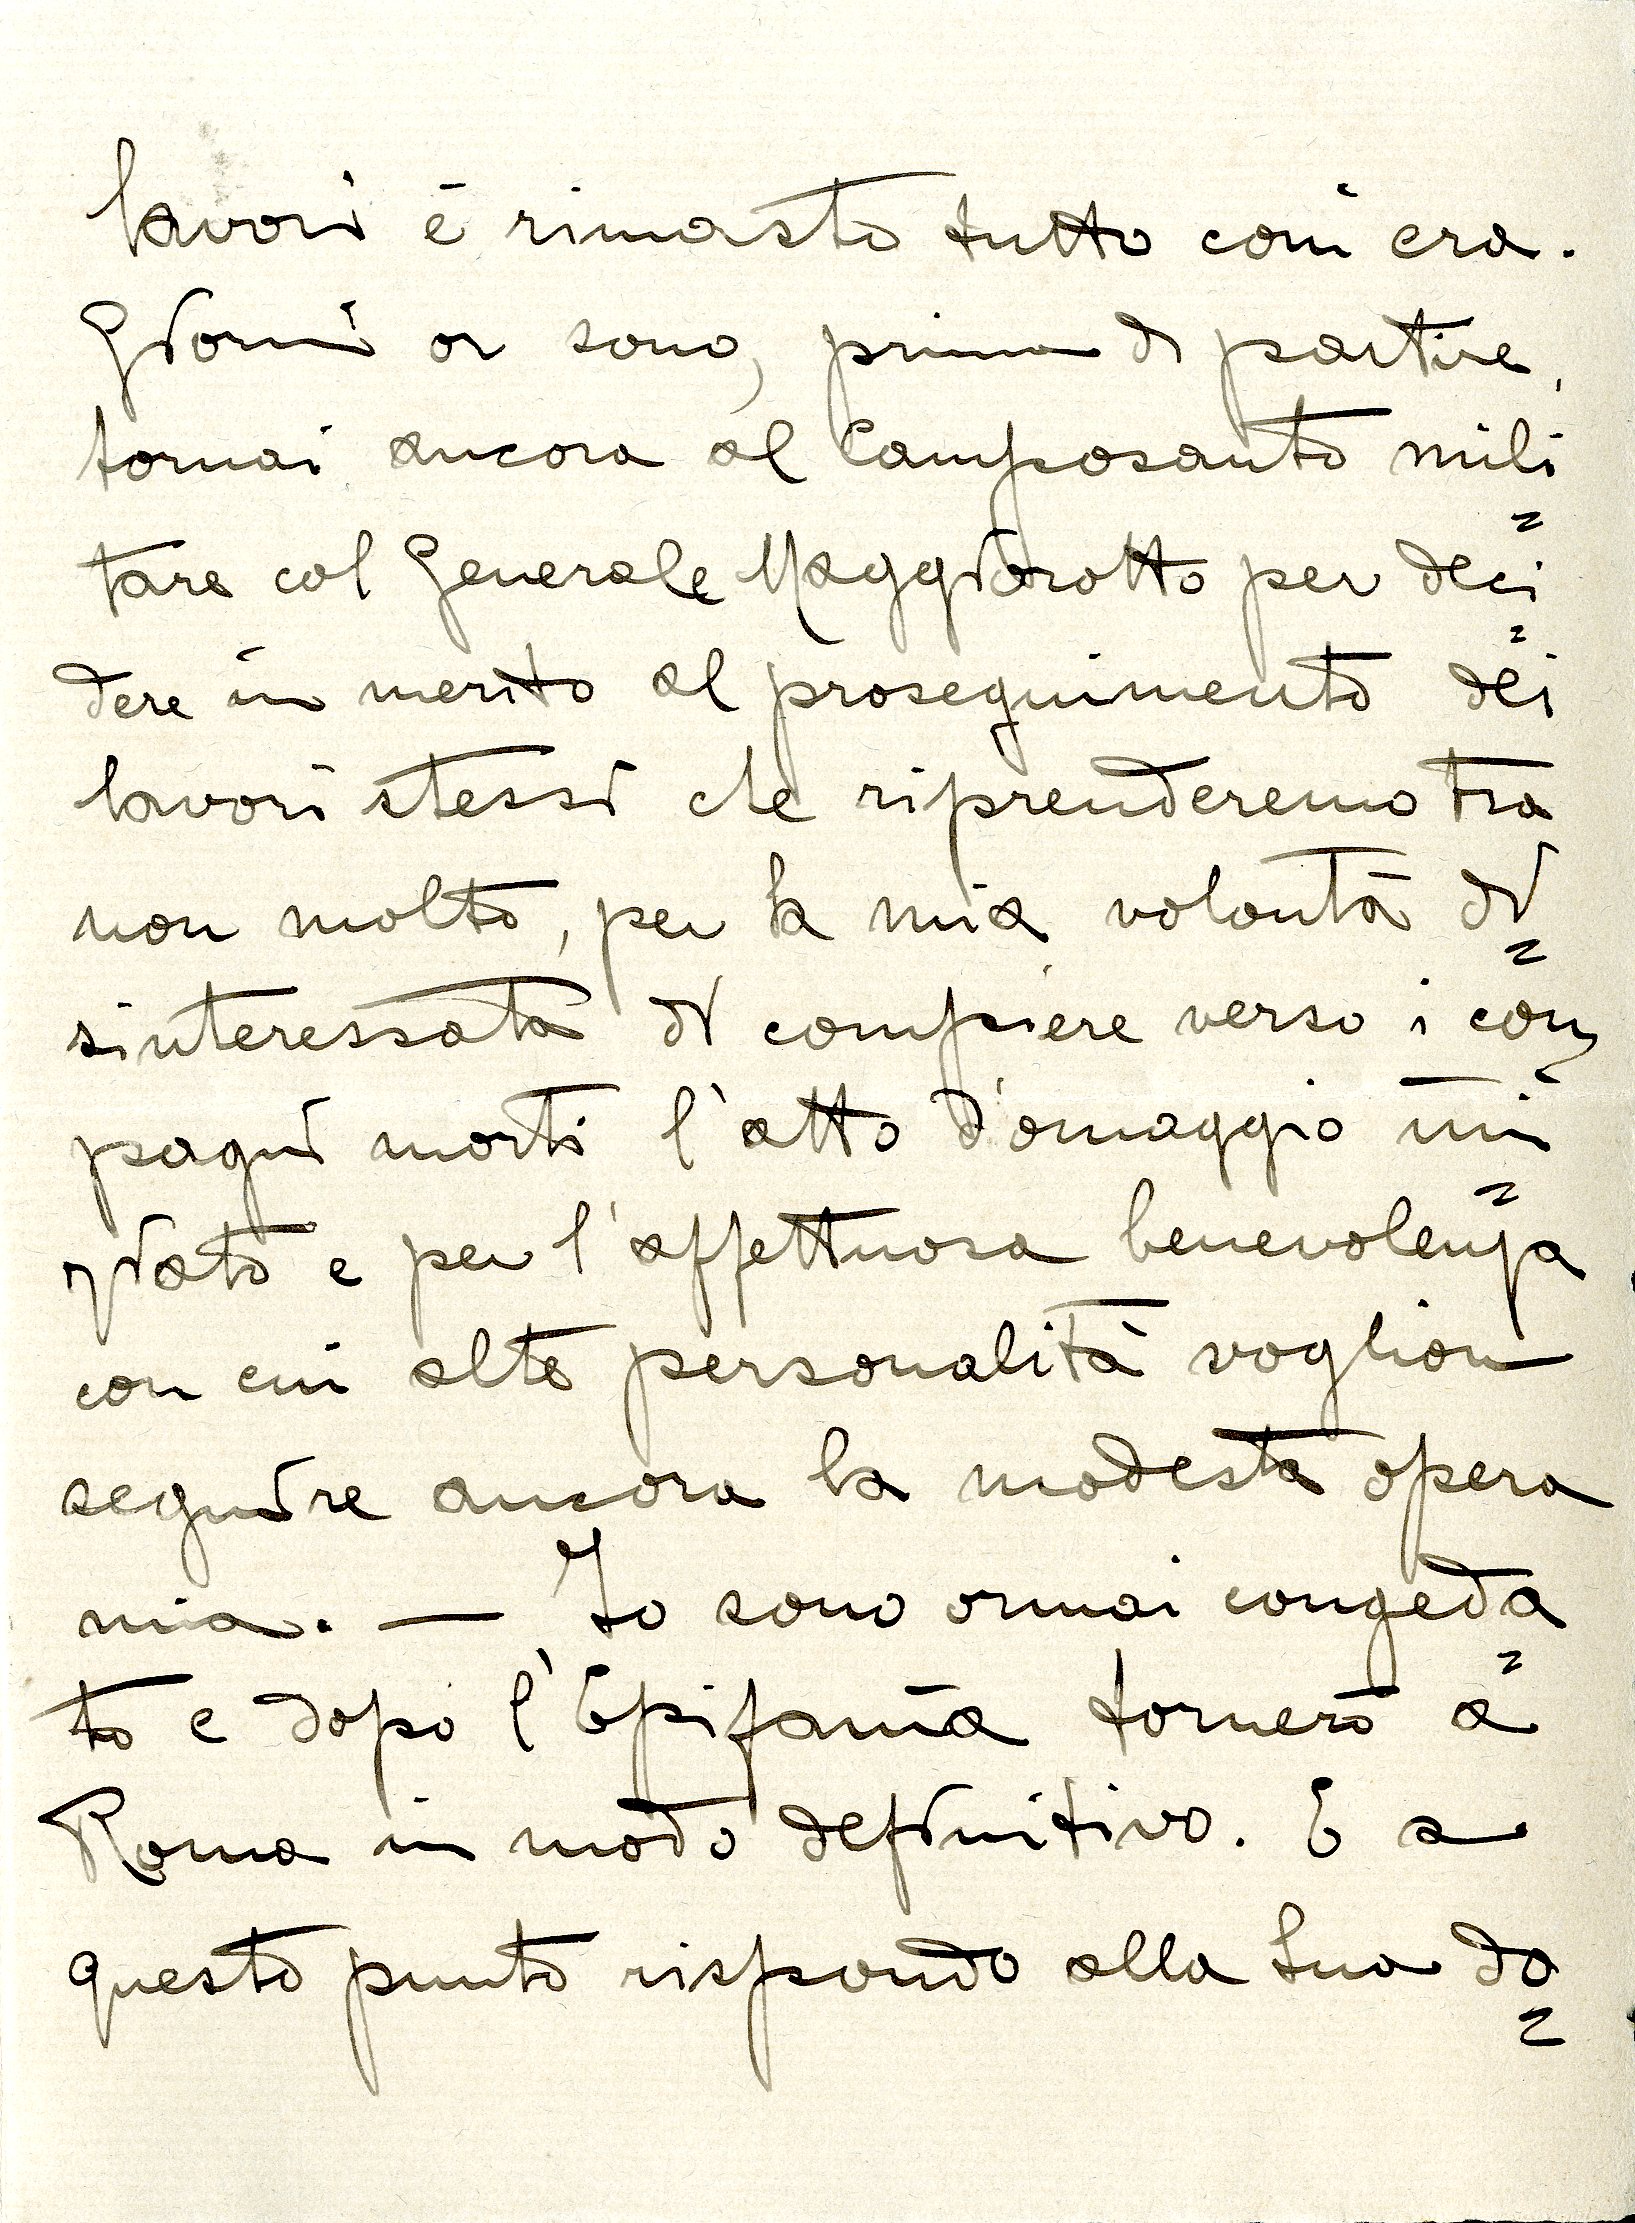 lavori è rimasto tutto com'era.
Giorni or sono, prima di partire,
tornai ancora al Camposanto mili=
tare col Generale Maggiorotto per deci=
dere in merito al proseguimento dei
lavori stessi che riprenderemo tra
non molto, per la mia volontà di=
sinteressata di compiere verso i com=
pagni morti l'atto d'omaggio ini=
ziato e per l'affettuosa benevolenza
con cui alte personalità voglion
seguire ancora la modesta opera
mia. — Io sono ormai congeda=
to e dopo l'Epifania tornerò a
Roma in modo definitivo. E a
questo punto rispondo alla tua do=